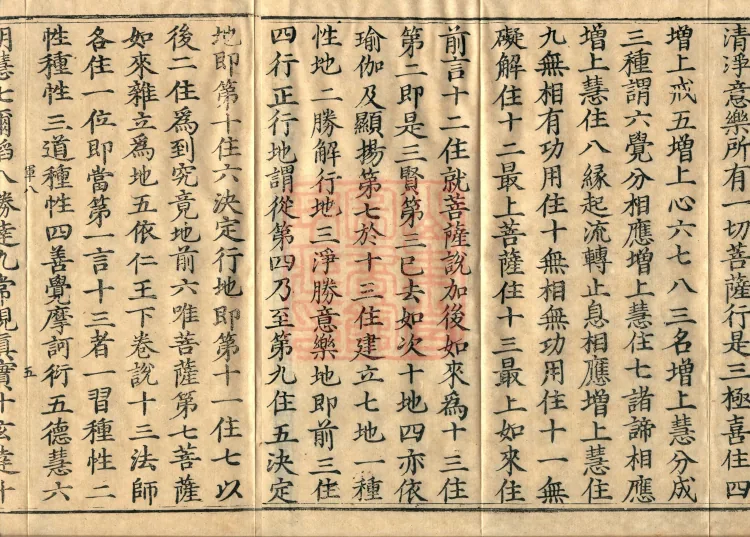 清淨意樂所有一切菩薩行是三極喜住四
增上戒五增上心六七八三名增上慧分成
三種謂六覺分相應增上慧住七諸諦相應
增上慧住八緣起流轉止息相應增上慧住
九無相有功用住十無相無功用住十一無
礙解住十二最上菩薩住十三最上如來住
前言十二住就菩薩說加後如來為十三住
第二即是三賢第三已去如次十地四亦依
瑜伽及顯揚第七於十三住建立七地一種
性地二勝解行地三淨勝意樂地即前三住
四行正行地謂從第四乃至第九住五決定
地即第十住六決定行地即第十一住七以
後二住為到究竟地前六唯菩薩第七菩薩
如來雜立為地五依仁王下卷說十三法師
各住一位即當第一言十三者一習種性二
性種性三道種性四善覺摩訶衍五德慧六
軍八
五
明慧七爾𦦨八勝達九常現真實十玄達十